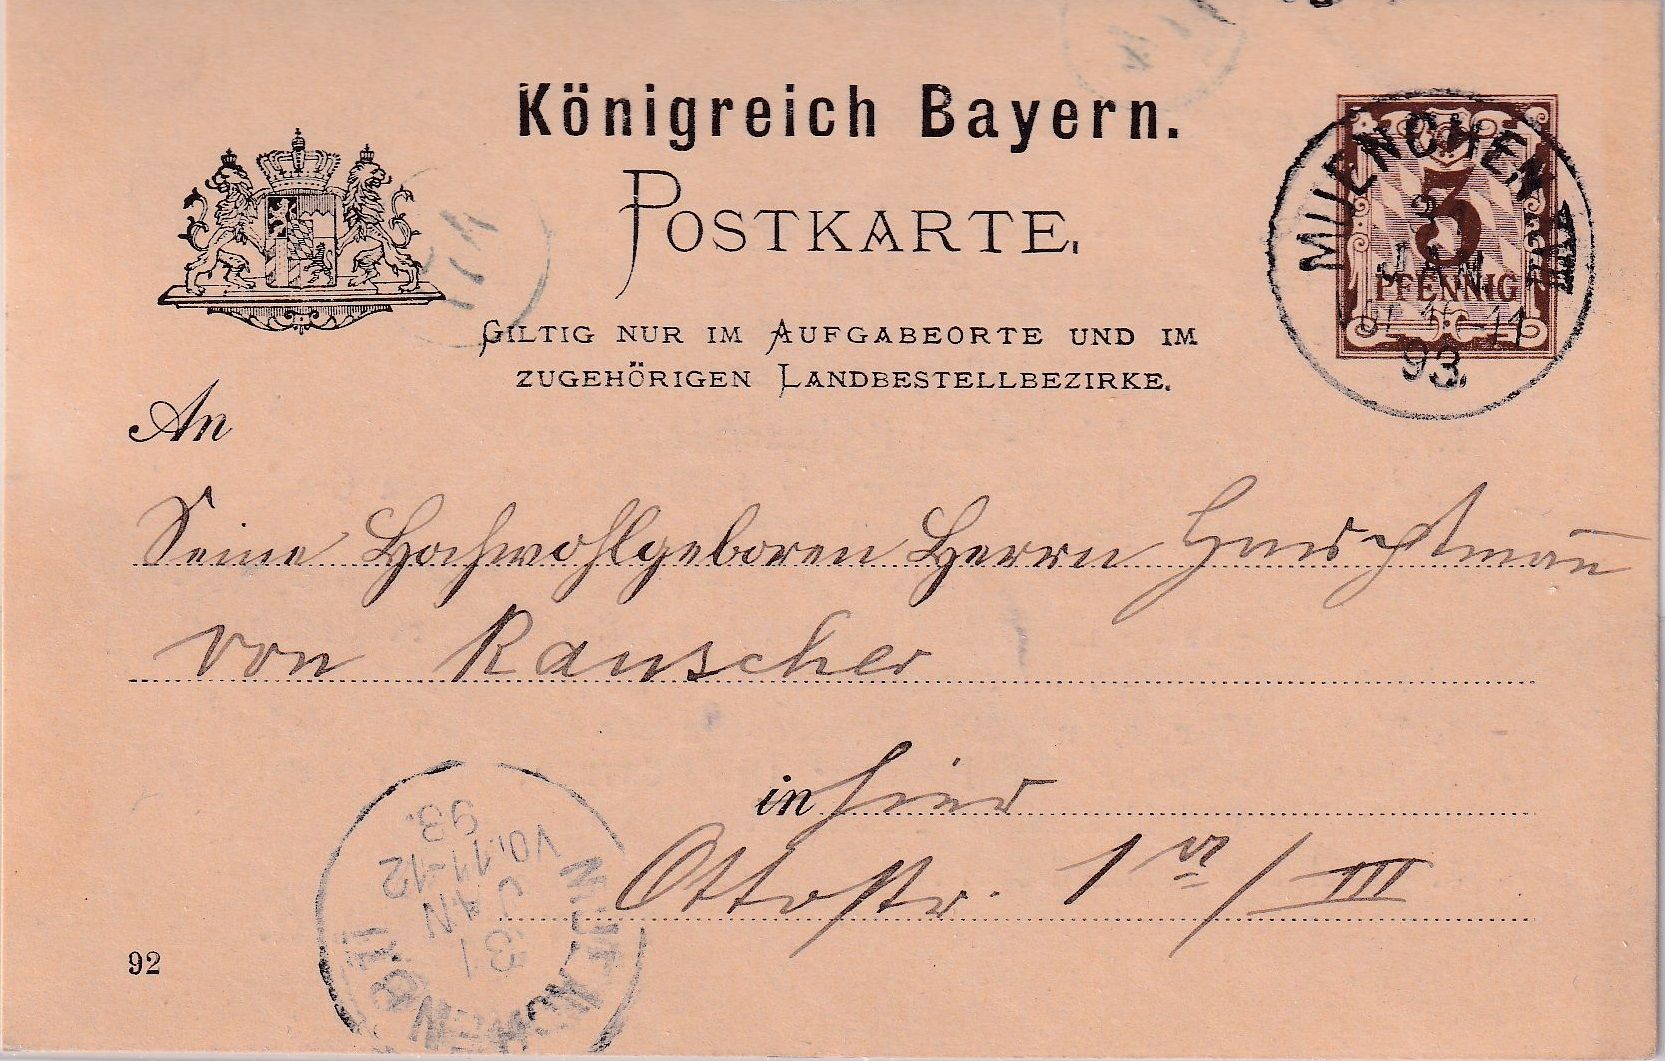 Königreich Bayern.
POSTKARTE.
3
PFENNIG
MUENCHEN
JAN
93.
GILTIG NUR IM AUFGABEORTE UND IM
ZUGEHÖRIGEN LANDBESTELLBEZIRKE.
An
Seine Hochwohlgeboren Herrn Hauptmañ
von Rauscher
in hier
Ottostr. 1 / III
MUENCHEN
31
JAN
VO.11-12
93.
92